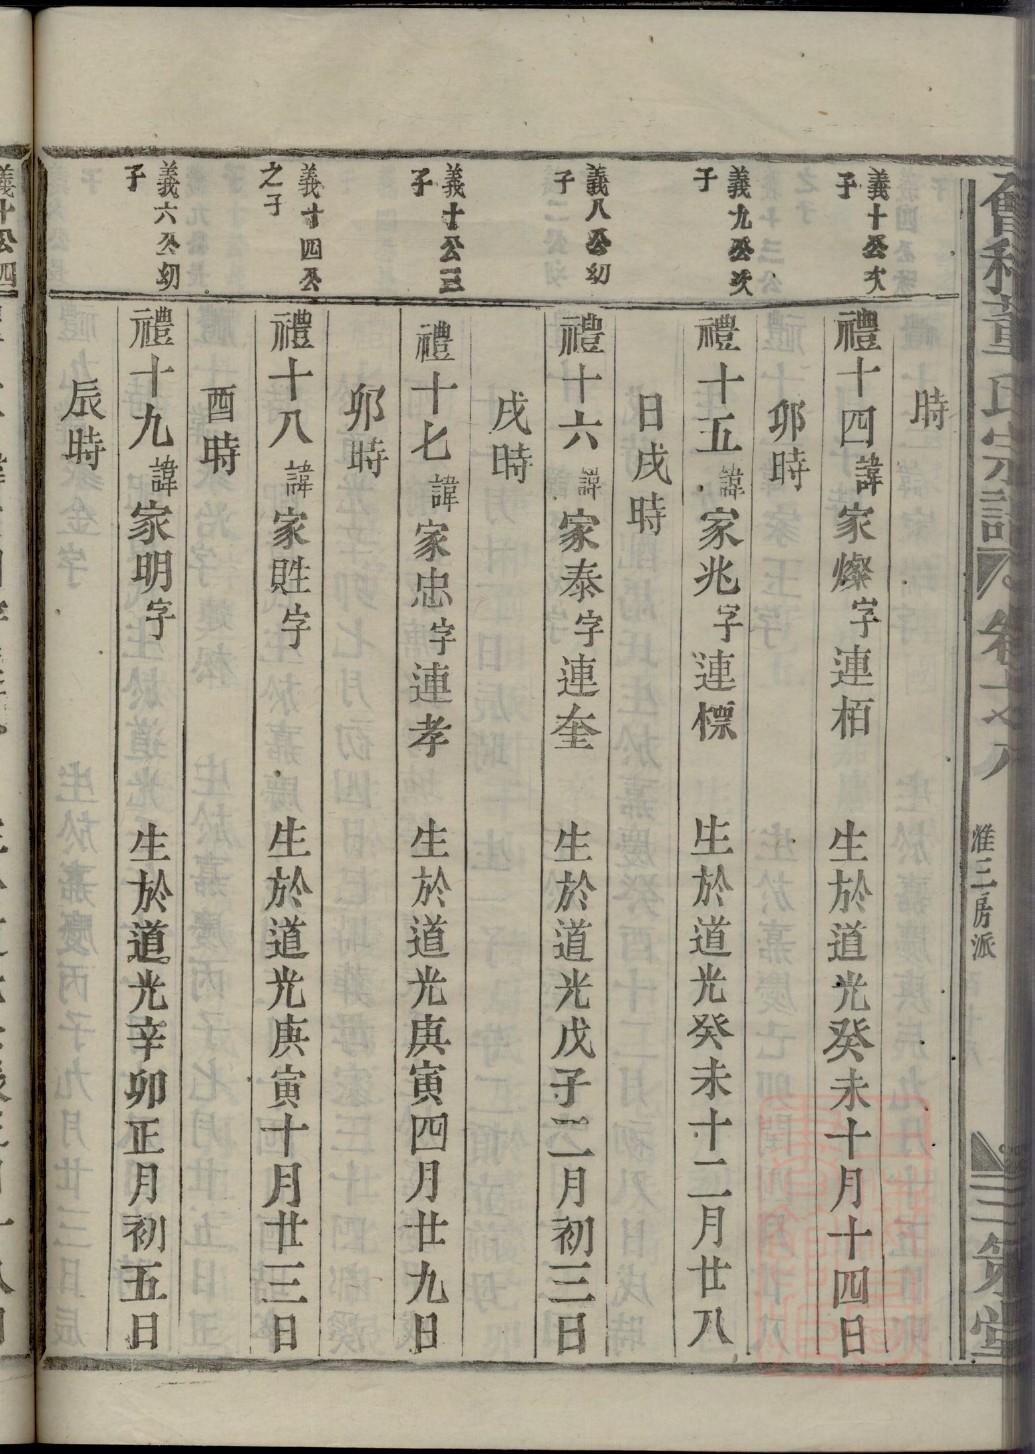 會稽董氏宗譜
雅三房派
三策堂
時
義十公次
子
禮十四諱家燦字連栢 生於道光癸未十月十四日
卯時
義九公次
子
禮十五諱家兆字連標 生於道光癸未十二月廿八
日戌時
義八公幼
子
禮十六諱家泰字連奎 生於道光戊子二月初三日
戌時
義十公三
子
禮十七諱家忠字連孝 生於道光庚寅四月廿九日
卯時
義十四公
之子
禮十八諱家甡字 生於道光庚寅十月廿三日
酉時
義六公幼
子
禮十九諱家明字 生於道光辛卯正月初五日
辰時
義十公四